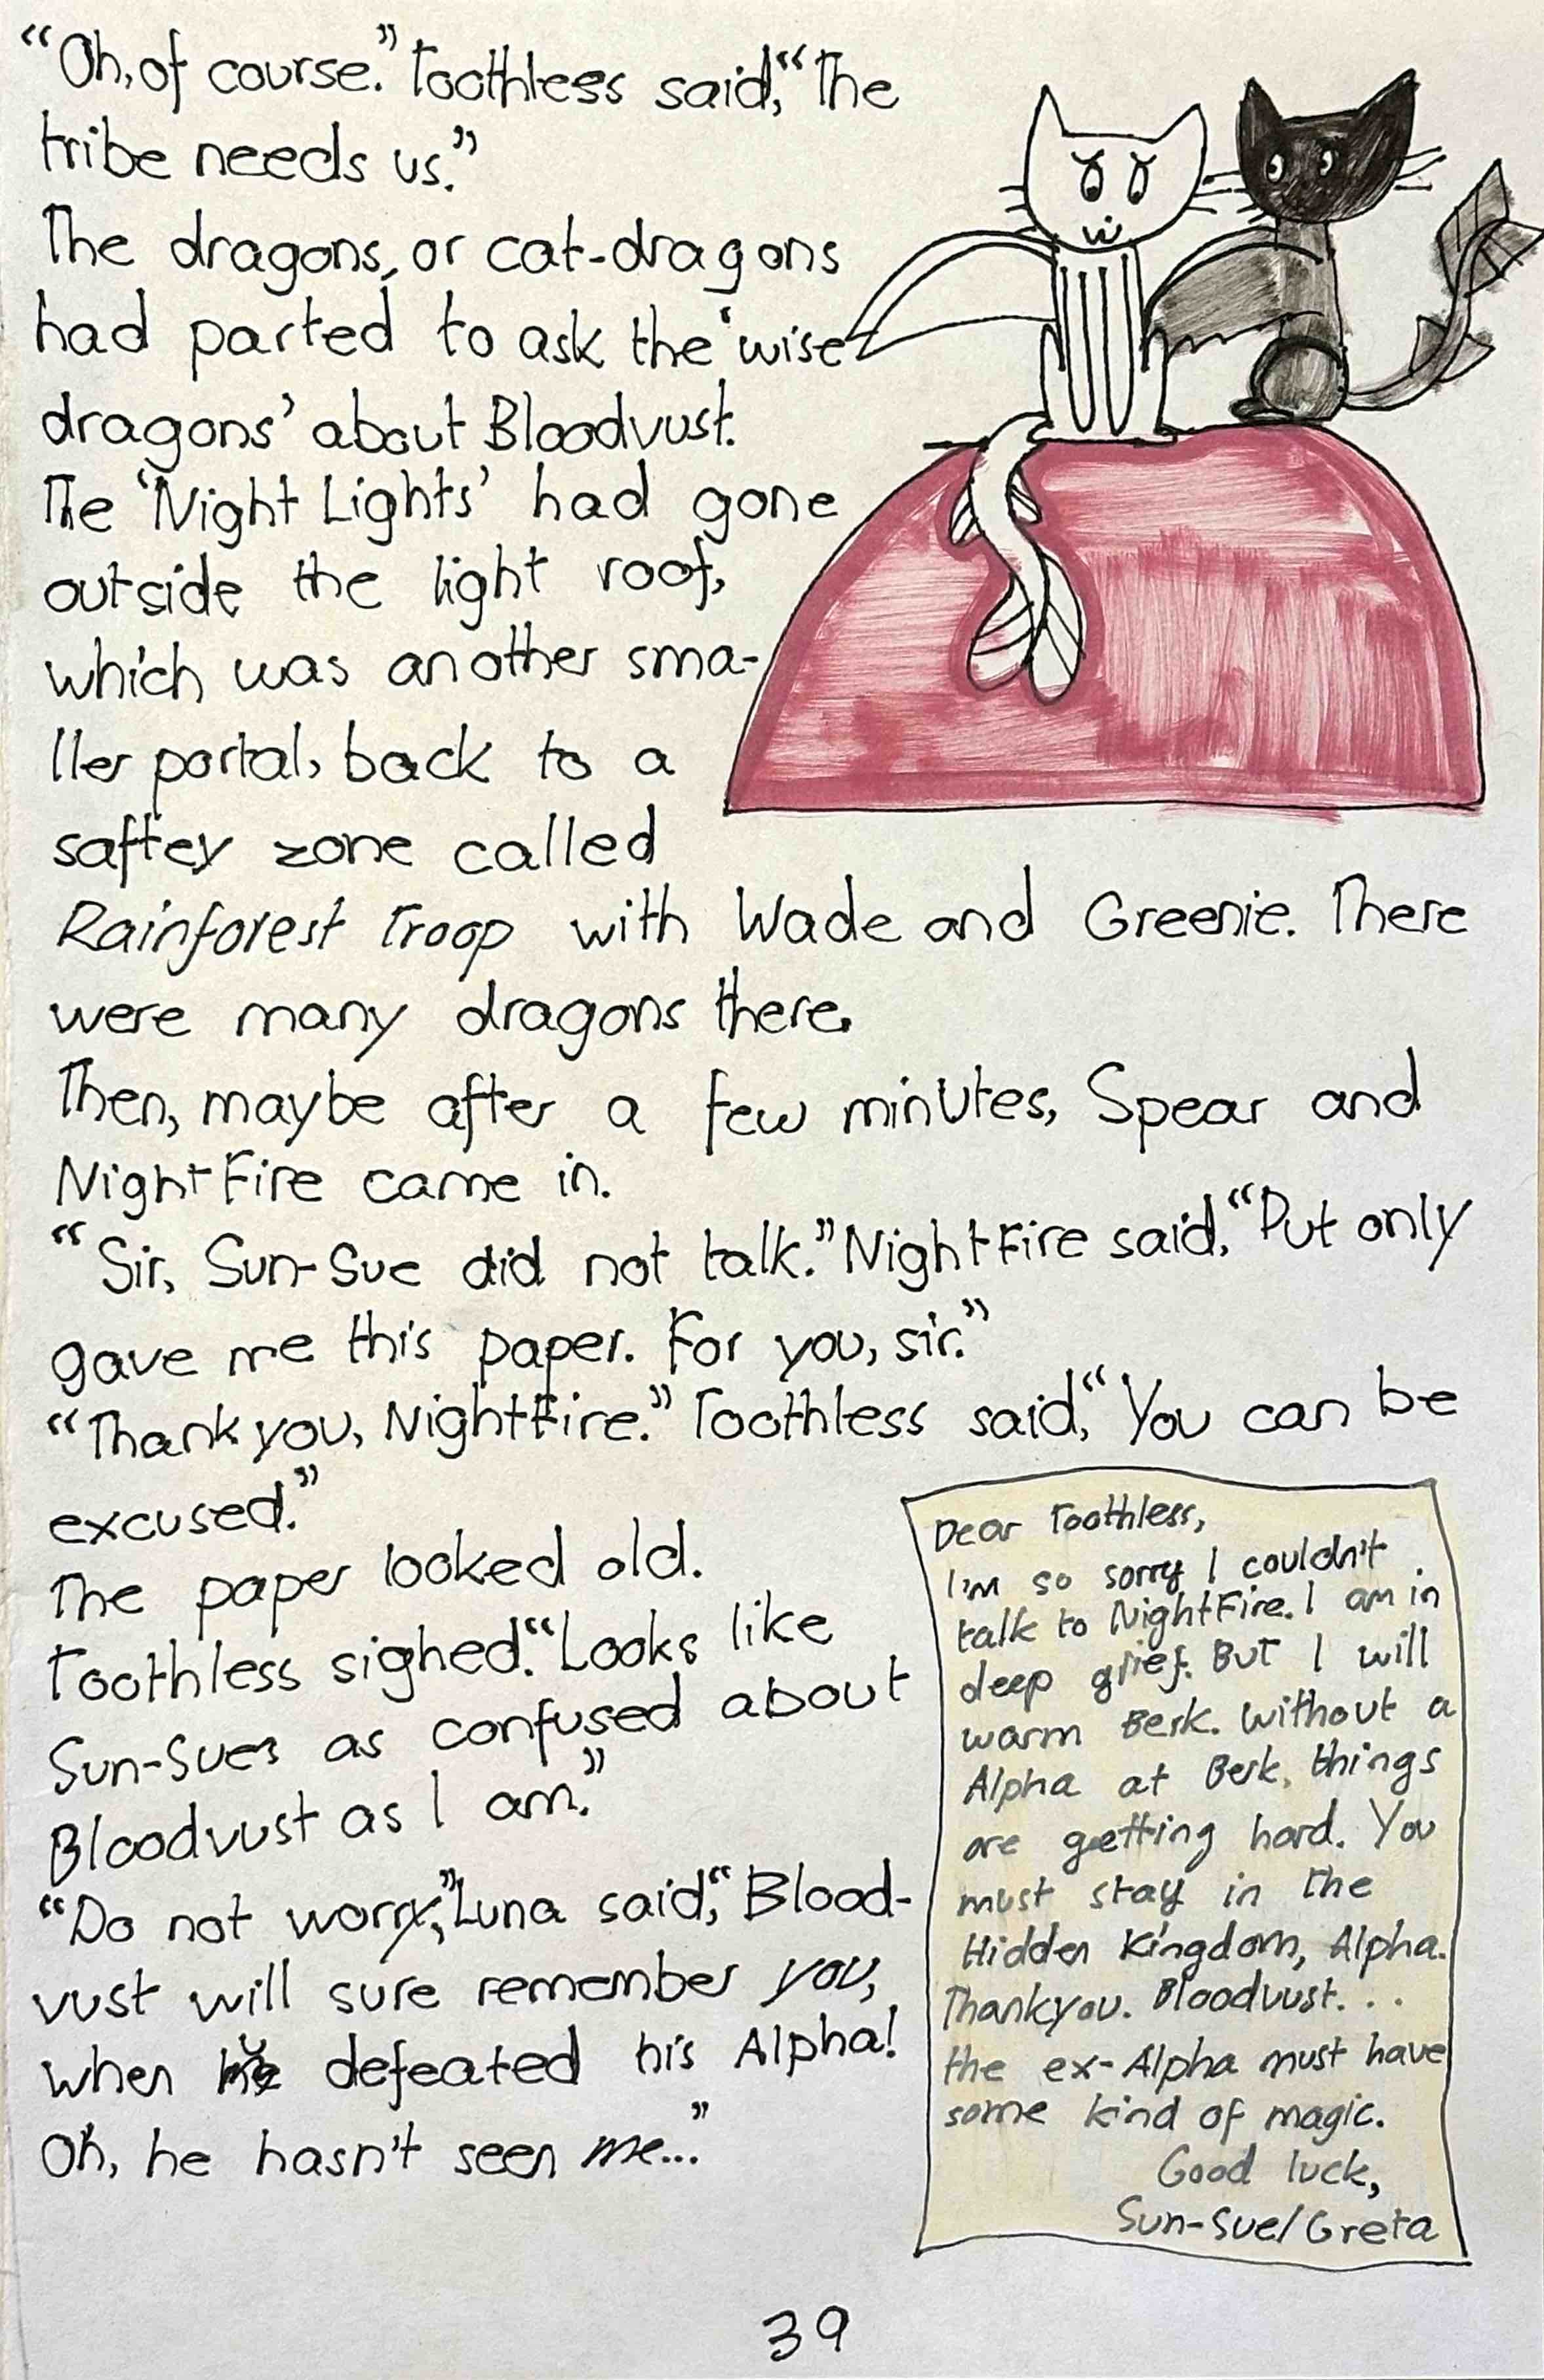 “Oh, of course.” Toothless said, “The
tribe needs us.”
The dragons, or cat-dragons
had parted to ask the ‘wise
dragons’ about Bloodvust.
The ‘Night Lights’ had gone
outside the light roof,
which was another sma-
ller portal, back to a
saftey zone called
Rainforest Troop with Wade and Greenie. There
were many dragons there.
Then, maybe after a few minutes, Spear and
NightFire came in.
“Sir, Sun-Sue did not talk.” NightFire said, “Put only
gave me this paper. For you, sir.”
“Thank you, NightFire.” Toothless said, “You can be
excused.”
The paper looked old.
Toothless sighed. “Looks like
Sun-Sues as confused about
Bloodvust as I am.”
“Do not worry,” Luna said, “Blood-
vust will sure remember you,
when defeated his Alpha!
Oh, he hasn't seen me...”
Dear Toothless,
I'm so sorry I couldn't
talk to NightFire. I am in
deep grief. But I will
warm Berk. Without a
Alpha at Berk, things
are getting hard. You
must stay in the
Hidden Kingdom, Alpha.
Thankyou. Bloodvust...
the ex-Alpha must have
some kind of magic.
Good luck,
Sun-Sue/Greta
39